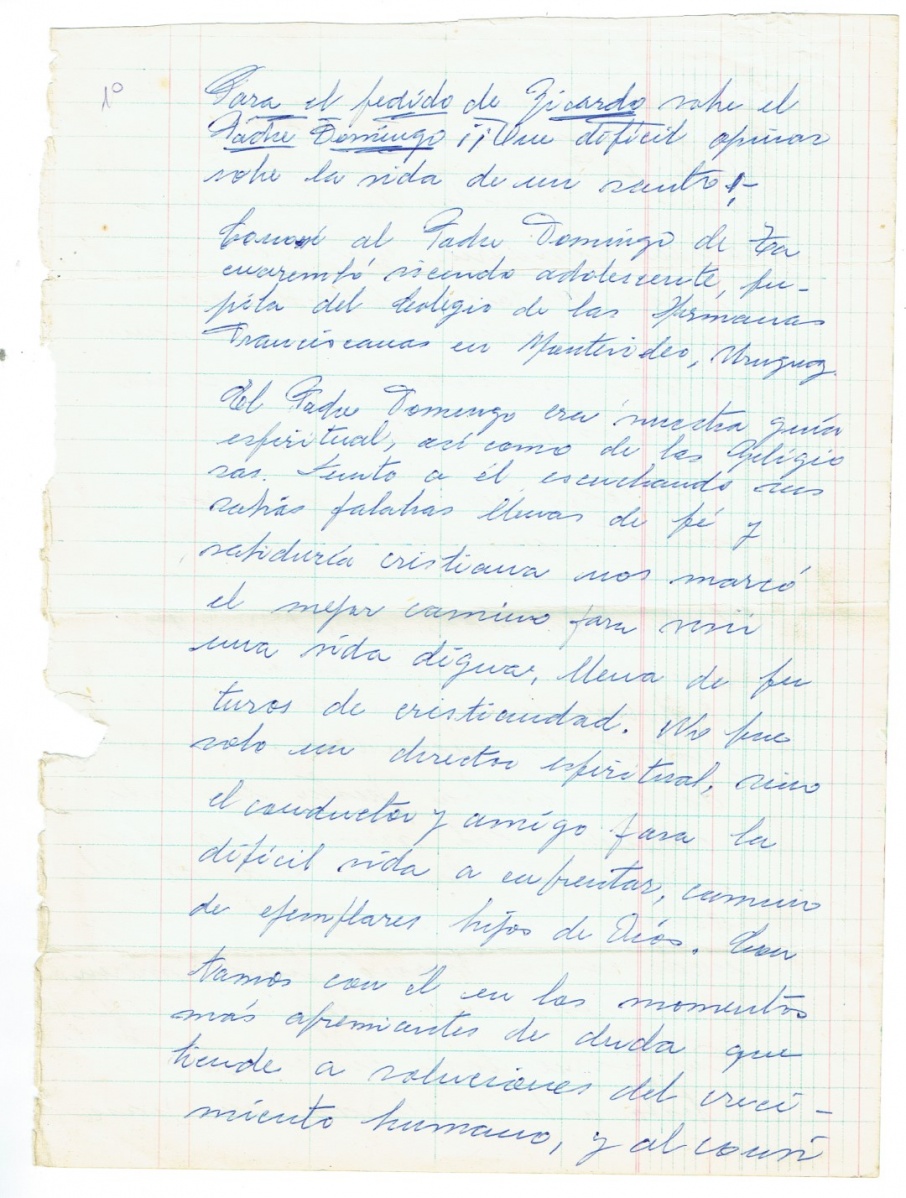 1º
Para el pedido de Ricardo sobre el
Padre Domingo ¡¡Que difícil opinar
sobre la vida de un santo!-
Conocí al Padre Domingo de Ta
cuarembó siendo adolescente, pu-
pila del Colegio de las Hermanas
Franciscanas en Montevideo, Uruguay.
El Padre Domingo era nuestra guía
espiritual, así como de las Religio
sas. Junto a él escuchando sus
sabias palabras llenas de fé y
sabiduría cristiana nos marcó
el mejor camino para vivir
una vida digna, llena de fu
turos de cristiandad. No fue
solo un director espiritual, sino
el conductor y amigo para la
difícil vida a enfrentar, camino
de ejemplares hijos de Dios. Con
tamos con él en los momentos
más apremiantes de duda que
tiende a soluciones del creci-
miento humano, y al